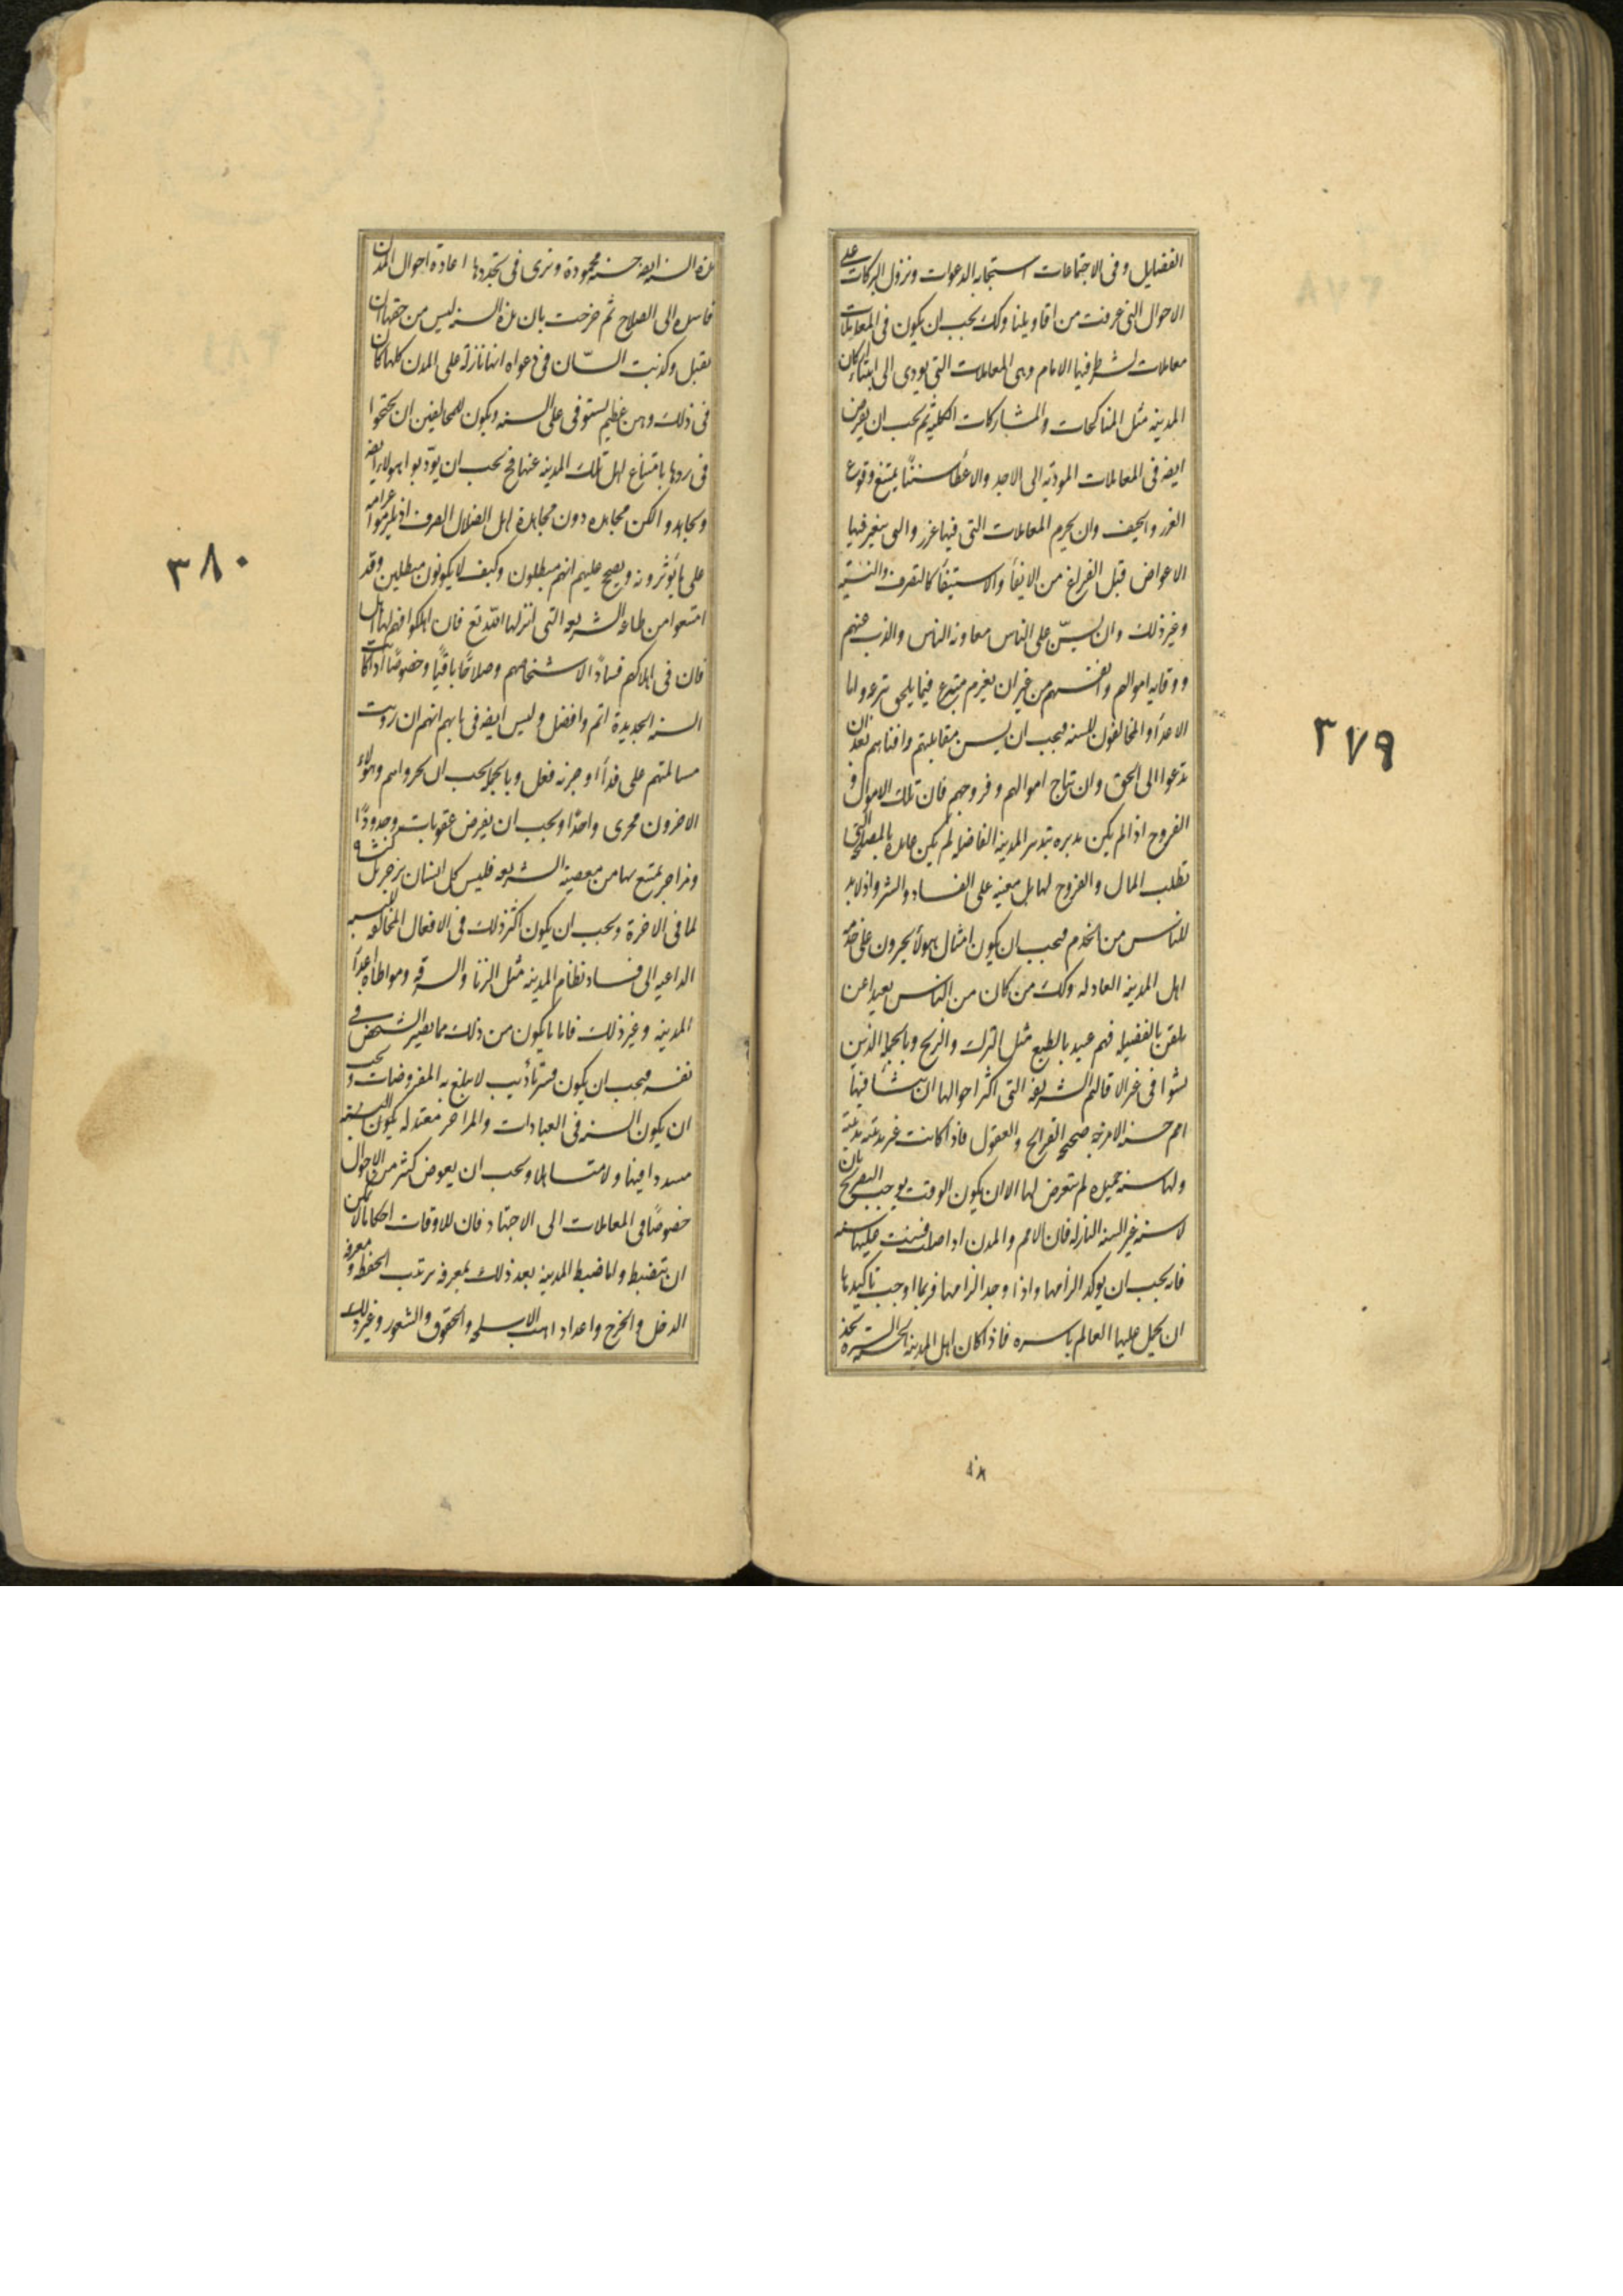 الفضایل وفی الاجتماعات استجابه الدعوات ونزول البرکات علی
الاحوال التی عرفت من اقاویلنا وکک یجب ان یکون فی المعاملات
معاملات یشترط فیها الامام وهی المعاملات التی یودی الی ابتناء ارکان
المدینه مثل المناکحات والمشارکات الکلیه ثم یجب ان یفرض
ایضه فی المعاملات المودیه الی الاخذ والاعطاء سننًا یمتنع وقوع
الغرر والحیف وان یحرم المعاملات التی فیها غرر والتی یتغیر فیها
الاعواض قبل الفراغ من الایفاء والاستیفاء کالصرف والنسیه
وغیر ذلک وان یسنّ علی الناس معاونه الناس والذب عنهم
ووقایه اموالهم وانفسهم من غیر ان یغرم متبرع فیما یلحق تبرعه واما
الاعداء والمخالفون للسنه فیجب ان یسن مقابلتهم وافناهم بعد ان
یدعوا الی الحق وان تباح اموالهم وفروجهم فان تلک الاموال و
الفروج اذا لم یکن مدبره بتدبیر المدینه الفاضله لم یکن عایده بالمصلحه التی
تطلب المال والفروج لها بل معینه علی الفساد والشر واذ لابد
للناس من الخدم فیجب ان یکون امثال هولاء یجبرون علی خدمه
اهل المدینه العادله وکک من کان من الناس بعیدا عن
تلقن بالفضیله فهم عبید بالطبع مثل الترک والزنج وبالجمله الذین
نشوا فی غیر الاقالیم الشریفه التی اکثر احوالها ان ینشاء فیها
امم حسنه الامزجه صحیحه القرایح والعقول فاذا کانت غیر مدینته مدینه
ولها سنه جمیله لم یتعرض لها الا ان یکون الوقت یوجب التصریح بان
لا سنه غیر السنه النازله فان الامم والمدن اذا ضلت فسنت علیها سنه
فانه یجب ان یوکد الزامها واذا وجد الزامها فربما اوجب تاکیدها
ان یحمل علیها العالم باسره فاذا کان اهل المدینه الحسنه السیره تجد
هذه السنه ایضه حسنه محمودة وتری فی تجددها اعادة احوال المدن
فاسده الی الصلاح ثم صرحت بان هذه السنه لیس من حقها ان
تقبل وکذبت السانّ فی دعواه انها نازلة علی المدن کلها کان
فی ذلک وهن عظیم یستوفی علی السنه ویکون للمخالفین ان یحتجوا
فی ردها بامتناع اهل تلک المدینه عنها فح یجب ان یؤدبوا هولاء ایضه
ویجاهدوا لکن مجاهده دون مجاهدة اهل الضلال الصرف او یلزموا غرامه
علی ما یؤثرونه ویصح علیهم انهم مبطلون وکیف لا یکونون مبطلین وقد
امتنعوا من طاعه الشریعه التی انزلها الله تع فان اهلکوا فهم لها اهل
فان فی اهلاکهم فسادًا لاشخاصهم وصلاحًا باقیًا وخصوصًا اذا کانت
السنه الجدیدة اتم وافضل ولیس ایضه فی بابهم انهم ان رویت
مسالمتهم علی فداء او جزیه فعل وبالجمله یجب ان لا یجروهم وهولاء
الاخرون مجری واحدًا ویجب ان یفرض عقوبات وحدودًا
ومزاجر یمتنع بها من معصیه الشریعه فلیس کل انسان ینزجر لما یخشاه
لما فی الاخرة ویجب ان یکون اکثر ذلک فی الافعال المخالفه للسنه
الداعیه الی فساد نظام المدینه مثل الزنا والسرقه ومواطاه اعداء
المدینه وغیر ذلک فاما ما یکون من ذلک مما یضر الشخص فی
نفسه فیجب ان یکون فیه تأدیب لا یبلغ به المفروضات ویجب
ان یکون السنه فی العبادات والمزاجر معتدله یکون السنه
مسددا فیها ولا متساهلا ویجب ان یعوض کثیر من الاحوال
خصوصًا فی المعاملات الی الاجتهاد فان للاوقات احکاما لا یمکن
ان تنضبط واما ضبط المدینه بعد ذلک بمعرفه ترتیب الحفظه و معرفه
الدخل والخرج واعداد اهب الاسلحه والحقوق والثغور وغیر ذلک
۳۷۹
۳۸۰